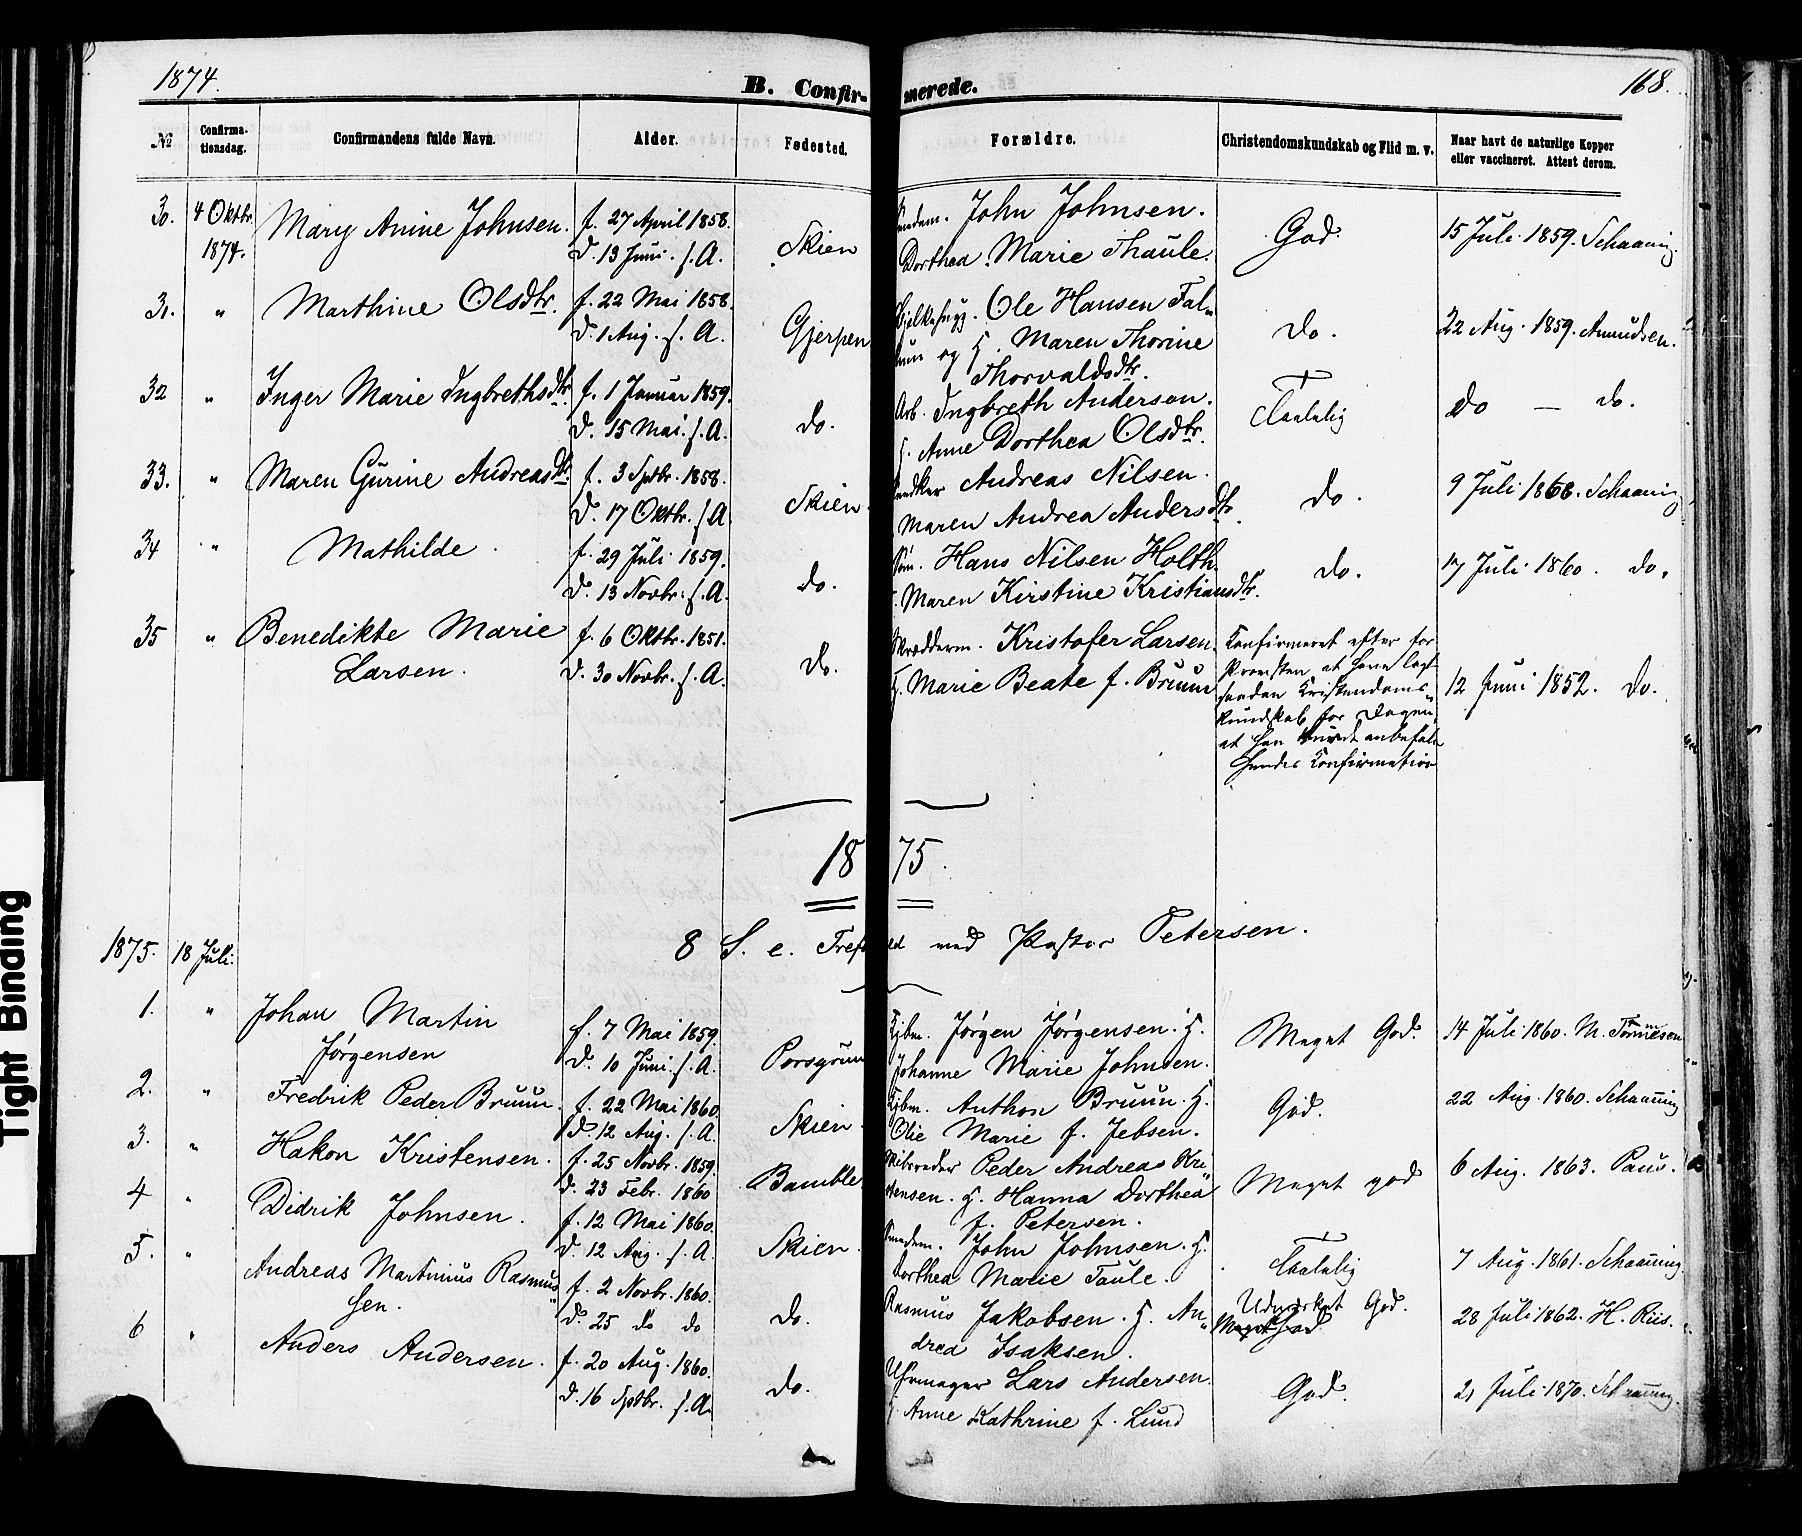 1874.
B. Confirmerede.
168.
№
Confirmationsdag.
Confirmandens fulde Navn.
Alder.
Fødested.
Forældre.
Christendomskundskab og Flid m. v.
Naar havt de naturlige Kopper
eller vaccineret. Attest derom.
30. 4 Oktbr. 1874. Mary Amine Johnsen. f. 27 April 1858. John Johnsen.
d. 13 Juni. s. A. Skien Dorthea Marie Thaule. God. 15 Juli 1859. Schaaning.
31. " Marthine Olsdtr. f. 22 Mai 1858. Ole Hansen Fal-
d. 1 Aug. s. A. Gjerpen um og H. Maren Thorine do. 22 Aug. 1859. Amundsen.
Thorvaldsdtr.
32 " Inger Marie Ingbrethsdtr. f. 1 Januar 1859. Arb. Ingbreth Anderson.
d. 15 Mai. s. A. do. Anne Dorthea Olsdtr. Taalelig do — do.
33. " Maren Gurine Andreasdtr. f. 3 Sptbr. 1858. Andreas Nilsen.
d. 17 Oktbr. s. A. Skien. Maren Andrea Andersdtr. do. 9 Juli 1868. Schaaning
34 " Mathilde. f. 29 Juli 1859. Hans Nilsen Holth.
d. 13 Novbr. s. A. do. Maren Kirstine Kristiansdtr. do. 17 Juli 1860. do.
35 " Benedikte Marie f. 6 Oktbr. 1851. Skrædderm. Kristofer Larsen.
Larsen. d. 30 Novbr. s. A. do. H. Marie Beate f. Bruun 12 Juni 1852. do.
Konfirmeret efter for
Provsten at have lagt
saadan Kristendoms
kundskab for Dagen,
at han anbefale
hendes Konfirmation
1875.
1875. 18 Juli. 8 S. e. Tref ved Pastor Petersen.
1. " Johan Martin f. 7 Mai 1859. Jørgen Jørgensen. H.
Jørgensen d. 10 Juni. s. A. Porsgrun Johanne Marie Johnsen. Meget God. 14 Juli 1860. M. Tønnesen
2. " Fredrik Peder Bruun. f. 22 Mai 1860. Anthon Bruun. H.
d. 12 Aug. s. A. Skien. Olie Marie f. Jebsen. God. 22 Aug. 1860. Schaaning
3. " Hakon Kristensen. f. 25 Novbr. 1859. Peder Andreas Kri
d. 23 Febr. 1860 Bamble. stensen. H. Hanna Dorthea Meget god 6 Aug. 1863. Paus.
f. Petersen.
4 " Didrik Johnsen. f. 12 Mai 1860. John Johnsen. H.
d. 12 Aug. s. A. Skien. Dorthea Marie Taule. Taalelig 7 Aug. 1861. Schaaning.
5. " Andreas Martinius Rasmus f. 2 Novbr. 1860. Rasmus Jakobsen. H. An
sen. d. 25 do do do. drea Isaksen. Udmærket God. Meget God 28 Juli 1862. H. Riis.
6 " Anders Andersen. f. 20 Aug. 1860. Uhrmager Lars Andersen.
d. 16 Sptbr. s. A. do. Anne Kathrine f. Lund God. 21 Juli 1870. Schaaning.
Tight Binding